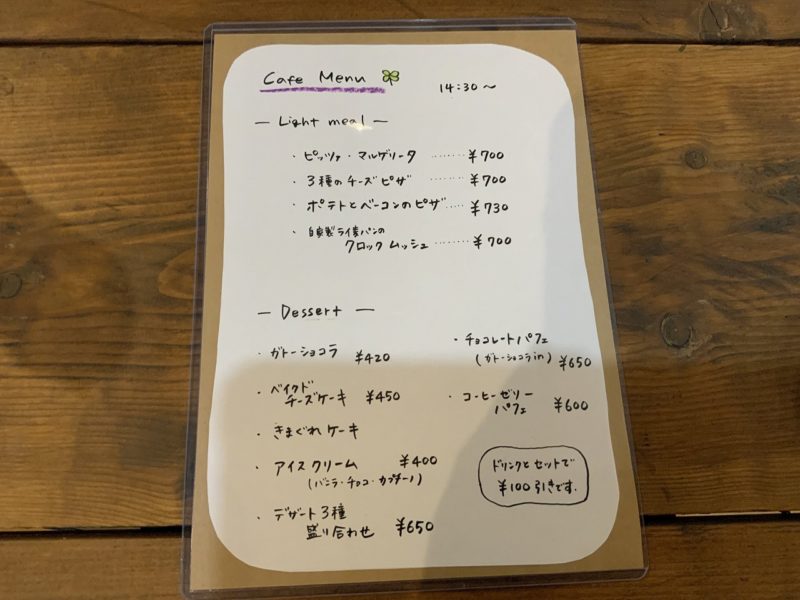 Cafe Menu
14:30〜
— Light meal —
・ピッツァ・マルゲリータ ……… ¥700
・3種のチーズピザ ……… ¥700
・ポテトとベーコンのピザ …… ¥730
・自家製ライ麦パンの
クロックムッシュ ……… ¥700
— Dessert —
・ガトーショコラ ¥420
・ベイクド
チーズケーキ ¥450
・きまぐれケーキ
・アイスクリーム ¥400
(バニラ・チョコ・カプチーノ)
・デザート3種
盛り合わせ ¥650
・チョコレートパフェ
(ガトーショコラin) ¥650
・コーヒーゼリー
パフェ ¥600
ドリンクとセットで
¥100引きです.